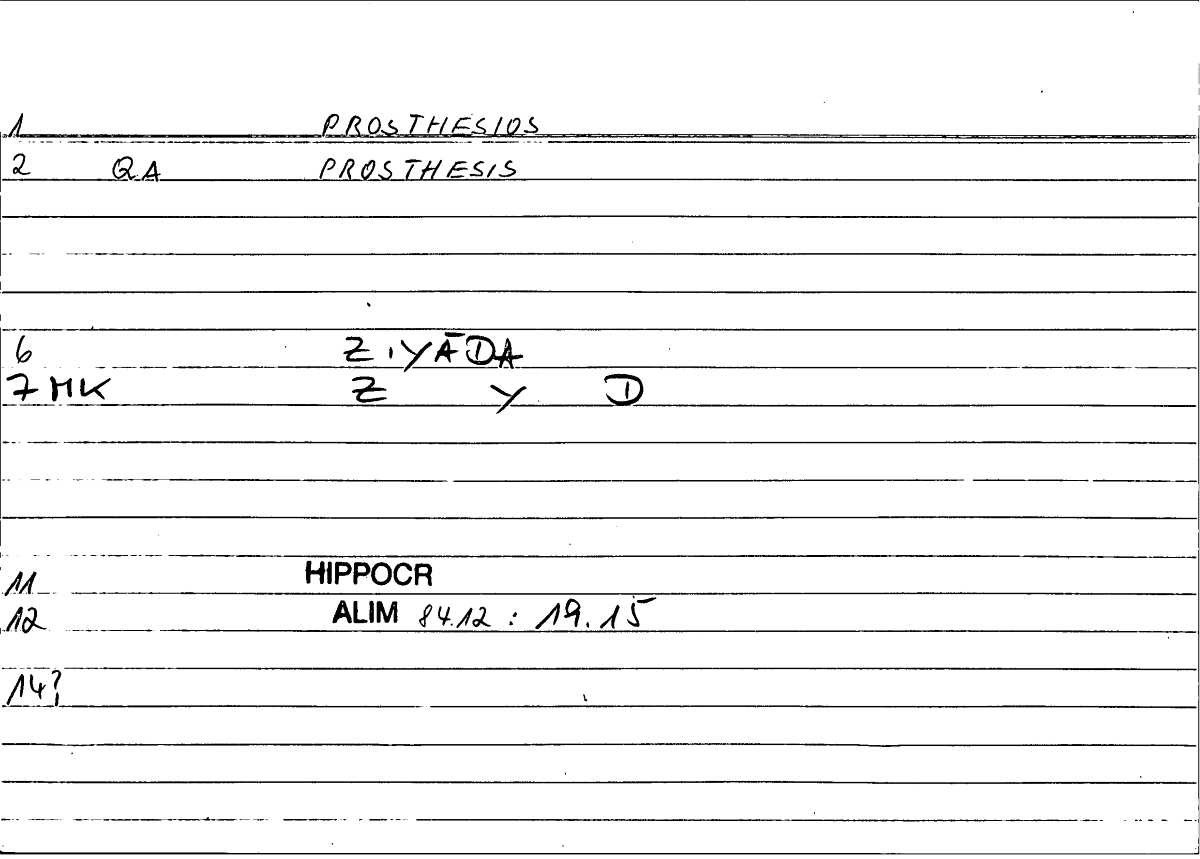 1 PROSTHESIOS
2 QA PROSTHESIS
6 ZIYĀDA
7 MK Z Y D
11 HIPPOCR
12 ALIM 84.12 : 19.15
14?